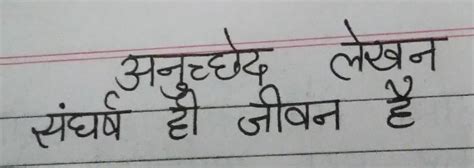 अनुच्छेद लेखन
संघर्ष ही जीवन है